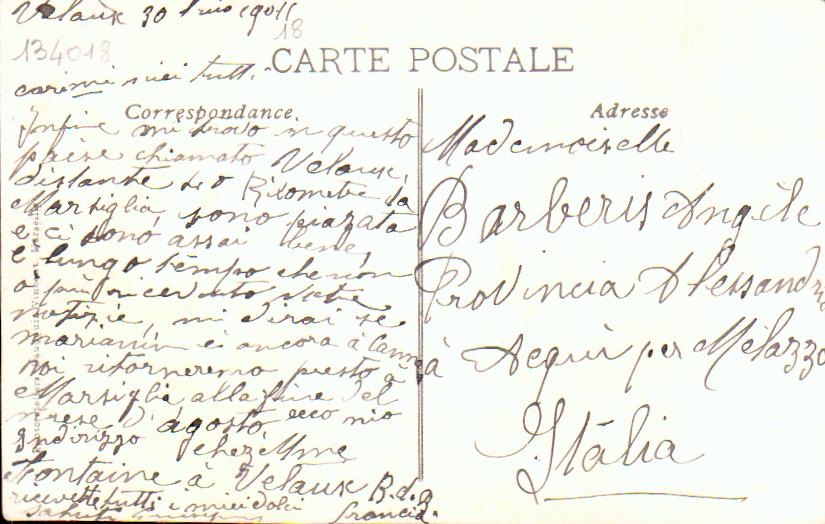 Velaux 30
18
134018
CARTE POSTALE
carimi miei tutti.
Correspondance
Adresse
Infine mi trovo in questo
paese chiamato Velaux,
distante Kilometri da
Marsiglia, sono piazata
e ci sono assai bene,
e lungo tempo che non
o più ricevuto vostre
notizie, mi dirai se
mariannin è ancora à Cann
noi ritorneremo presto à
Marsiglia alla fine del
mese d'agosto ecco mio
Indirizzo chez Mme
Fontaine à Velaux B.d.R
ricevette tutti i miei dolci
saluti francia.
Mademoiselle
Barberis Angèle
Provincia Alessandria
à Acqui per Melazzo
Itália